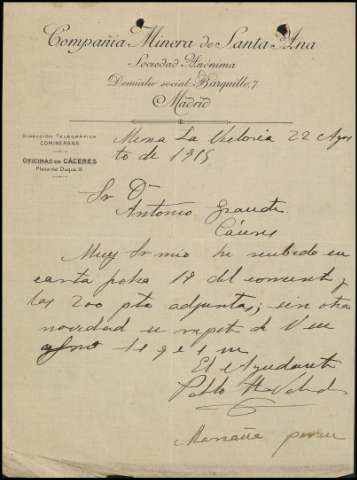 Compañía Minera de Santa Ana
Sociedad Anónima
Domicilio social: Barquillo, 7
Madrid
DIRECCIÓN TELEGRÁFICA
COMINERANA
OFICINAS EN CÁCERES
Plaza del Duque
Mina La Victoria 22 Agos
to de 1915
Sr Dn
Antonio Grande
Cáceres
Muy Sr mio he recibido su
carta fecha 18 del corriente y
las 200 pts adjuntas; sin otra
novedad se repite de V su
El Ayudante
Pablo
Mañana